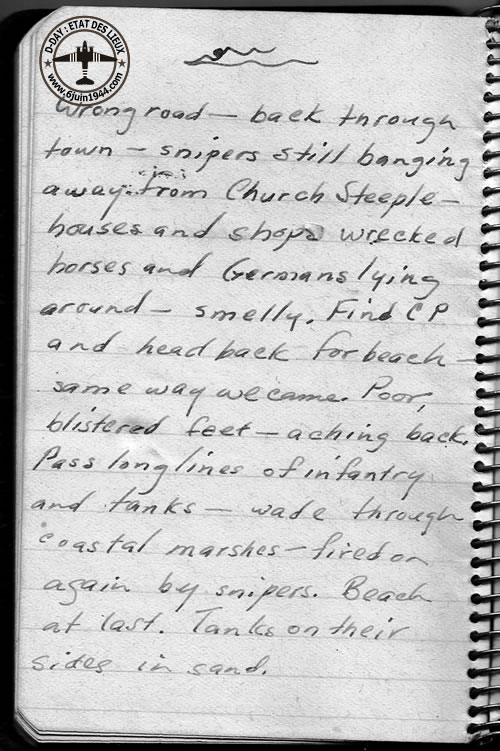 D-DAY : ETAT DES LIEUX
www.6juin1944.com
Wrong road — back through
town — snipers still banging
away from Church Steeple —
houses and shops wrecked
horses and Germans lying
around — smelly. Find CP
and head back for beach —
same way we came. Poor,
blistered feet — aching back.
Pass long lines of infantry
and tanks — wade through
coastal marshes — fired on
again by snipers. Beach
at last. Tanks on their
sides in sand.